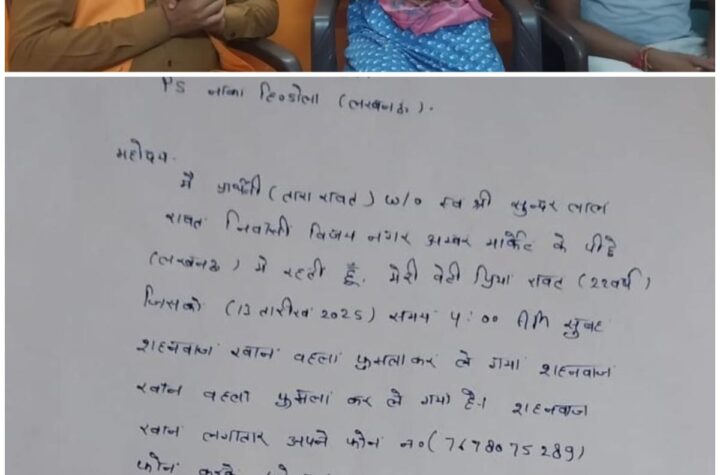 PS नाका हिन्डोला (लखनऊ).
महोदय.
मै प्रार्थनी (तारा रावत) w/o स्व श्री सुन्दर लाल
रावत निवासी विजय नगर अम्बर मार्केट के पीछे
(लखनऊ) मे रहती हूँ. मेरी बेटी प्रिया रावत (22वर्ष)
जिसको (13 तारीख 2025) समय 4:00 AM सुबह
शहनवाज खान वहला फुसलाकर ले गया शहनवाज
खान वहला फुसला कर ले गया है। शहनवाज
खान लगातार अपने फोन न० (7678075289)
फोन करके